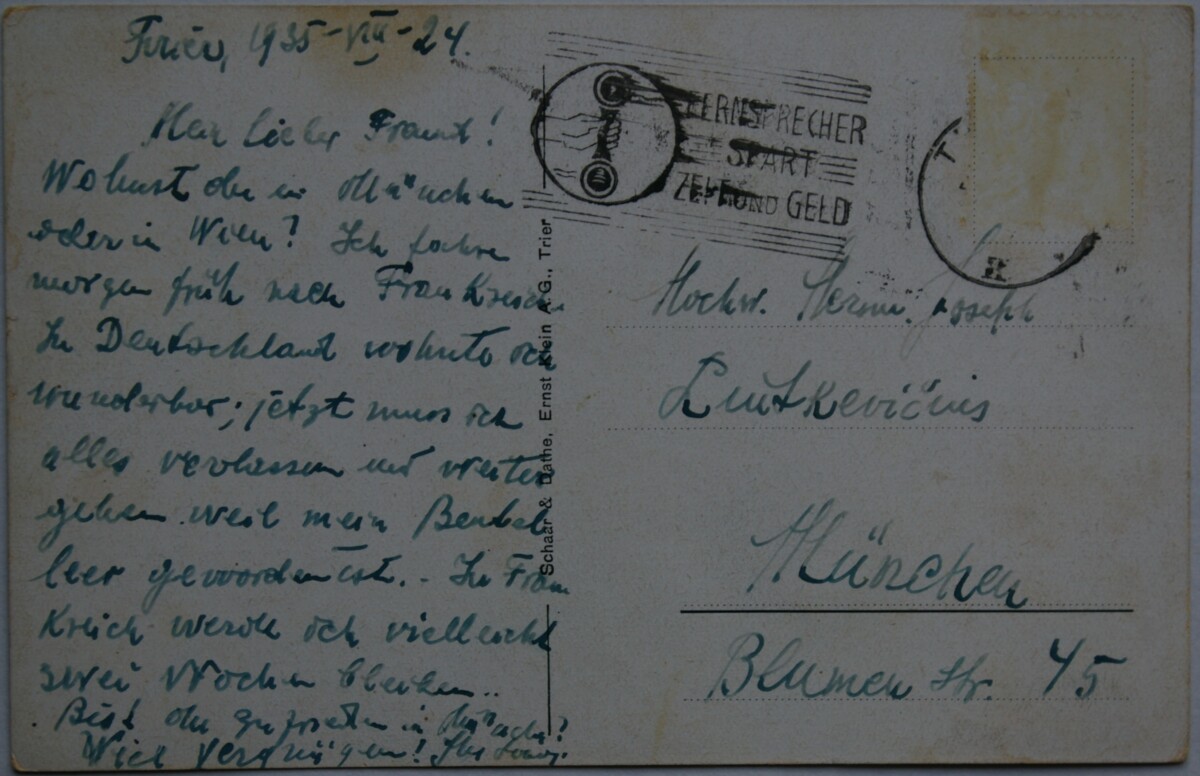 Trier, 1935-VIII-24.
Mein lieber Freund!
Wohnst du in München
oder in Wien? Ich fahre
morgen früh nach Frankreich.
In Deutschland wohnte ich
wunderbar; jetzt muss ich
alles verlassen und weiter
gehen weil mein Beutel
leer geworden ist. - In Fran
kreich werde ich vielleicht
zwei Wochen bleiben..
Bist du zufrieden in München?
Viel Vergnügen! Ihr
Schaar & Dathe, Ernst Klein A.G., Trier
FERNSPRECHER
SPART
ZEIT UND GELD
T
Hochw. Herrn. Joseph
Liutkevičius
München
Blumen str. 45